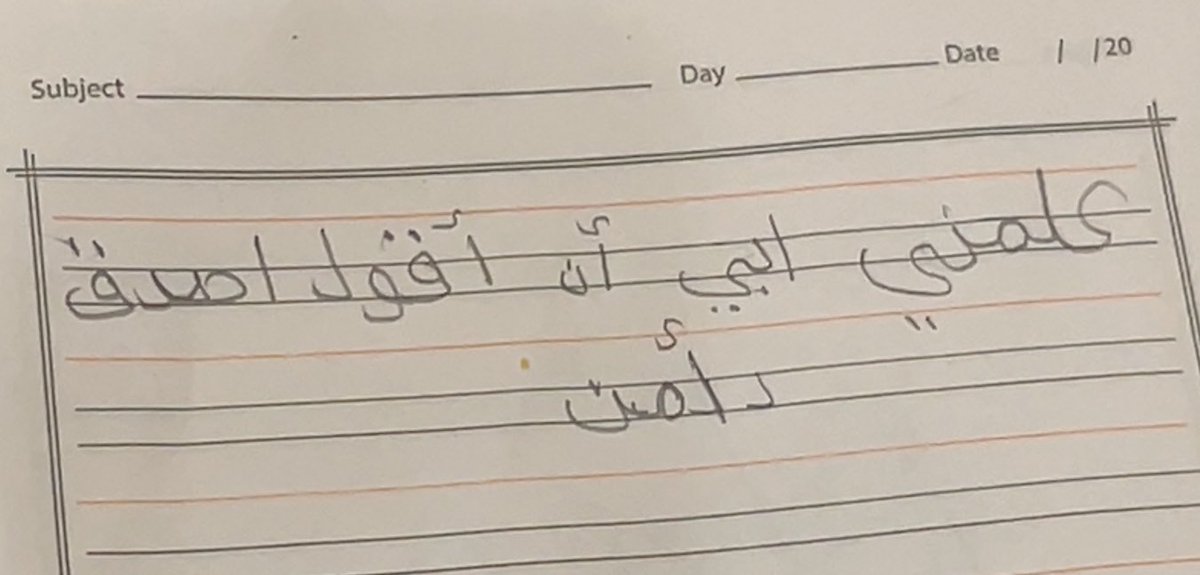 Subject Day Date / /20
علمني ابي أن أقول اصدق
دأمن